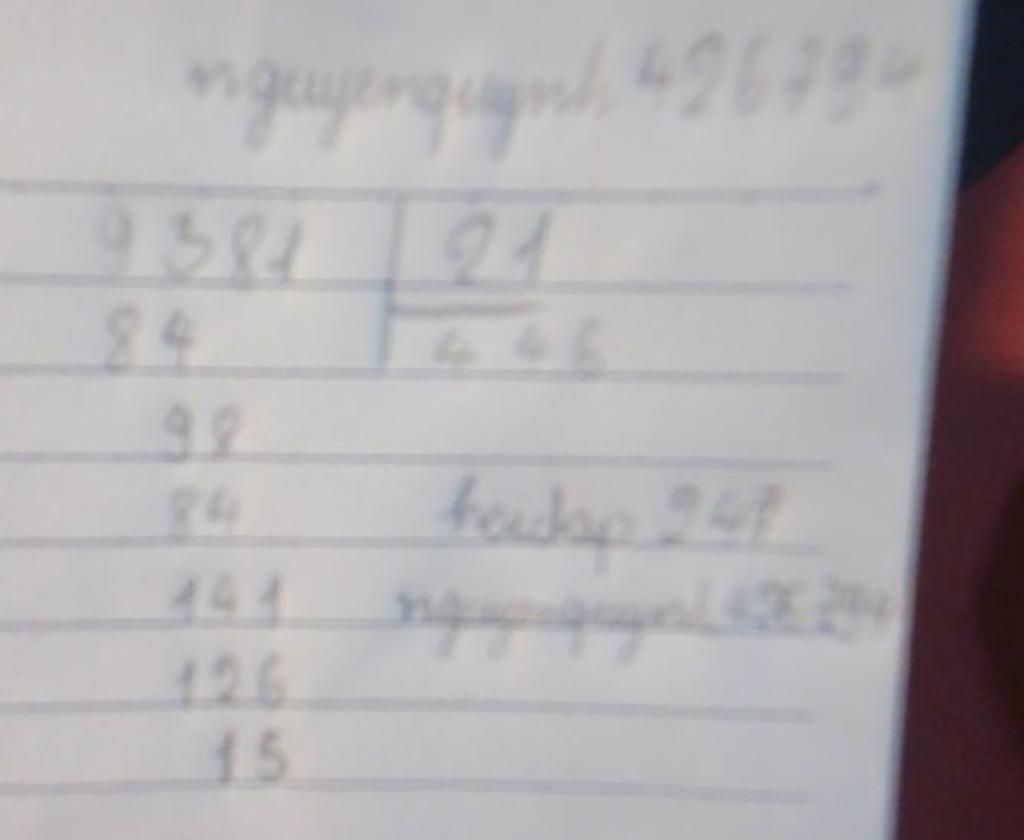 nguyenquynh 426794
9381 21
84 446
98
84 hoidap 247
141 nguyenquynh 426794
126
15